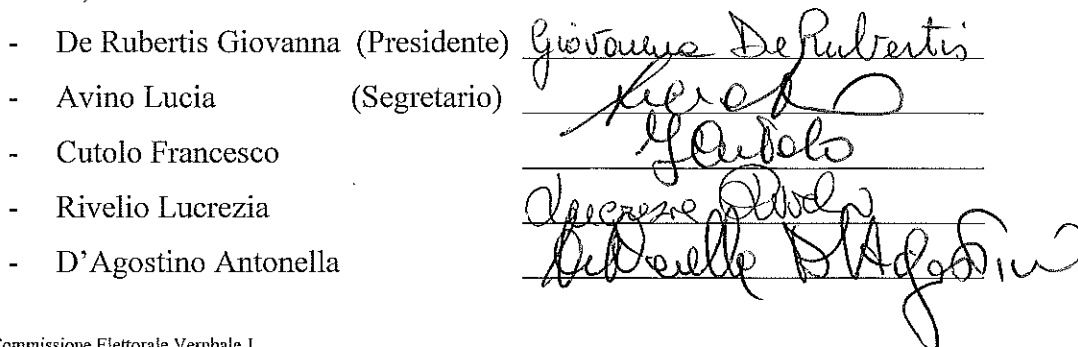 - De Rubertis Giovanna (Presidente) Giovanna De Rubertis
- Avino Lucia (Segretario)
- Cutolo Francesco
- Rivelio Lucrezia Lucrezia
- D'Agostino Antonella Antonella D'Agostino
Commissione Elettorale Verbale 1